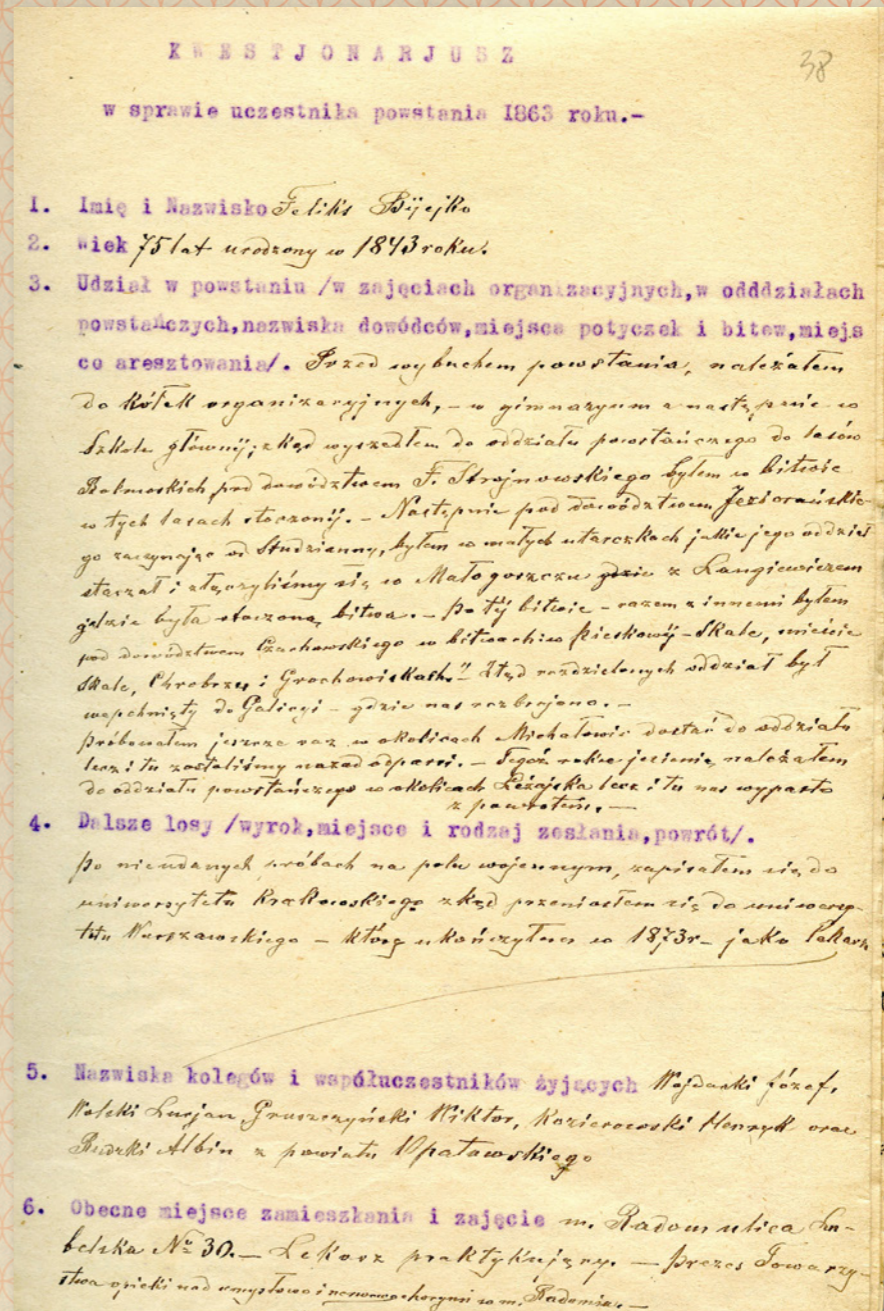 KWESTJONARJUSZ
38
w sprawie uczestnika powstania 1863 roku.-
1. Imię i Nazwisko Feliks Bijejko
2. Wiek 75 lat urodzony w 1843 roku.
3. Udział w powstaniu /w zajęciach organizacyjnych,w odddziałach
powstańczych,nazwiska dowódców,miejsca potyczek i bitew,miejs
co aresztowania/. Przed wybuchem powstania, należałem
do kółek organizacyjnych, - w gimnazyum a następnie w
Szkole głównéj; zkąd wyszedłem do oddziału powstańczego do lasów
pod dowództwem F. Strojnowskiego byłem w bitwie
w tych lasach stoczonéj. - Następnie pod dowództwem Jeziorańskie-
go zaczynając od Studzianny, byłem w małych utarczkach jakie jego oddział
staczał i złączyliśmy się w Małogoszczu gdzie z Langiewiczem
gdzie była stoczoną bitwa. - Po téj bitwie - razem z innemi byłem
pod dowództwem Czachowskiego w bitwach: w Pieskowéj-Skale, mieście
Skale, Chrobrzu i Grochowiskach." Ztąd rozdzielonych oddział był
wepchnięty do Galicyi - gdzie nas rozbrojono. -
Próbowałem jeszcze raz w okolicach Michałowic dostać do oddziału
lecz i tu zostaliśmy nazad odparci. - Tegoż roku jesienią należałem
do oddziału powstańczego w okolicach Leżajska lecz i tu nas wyparto
z powrotem. -
4. Dalsze losy /wyrok,miejsce i rodzaj zesłania,powrót/.
Po nieudanych próbach na polu wojennym, zapisałem się do
uniwersytetu Krakowskiego zkąd przeniosłem się do uniwersy-
tetu Warszawskiego - któren ukończyłem w 1873r - jako lekarz
5. Nazwiska kolegów i współuczestników żyjących Wojdacki Józef,
Wolski Lucjan, Gruszczyński Wiktor, Kozierowski Henryk oraz
Rudzki Albin z powiatu Opatowskiego
6. Obecne miejsce zamieszkania i zajęcie m. Radom ulica Lu-
belska № 30. - Lekarz praktykujący. - Prezes Towarzy-
stwa opieki nad umysłowo i nerwowo chorymi w m. Radomiu. -